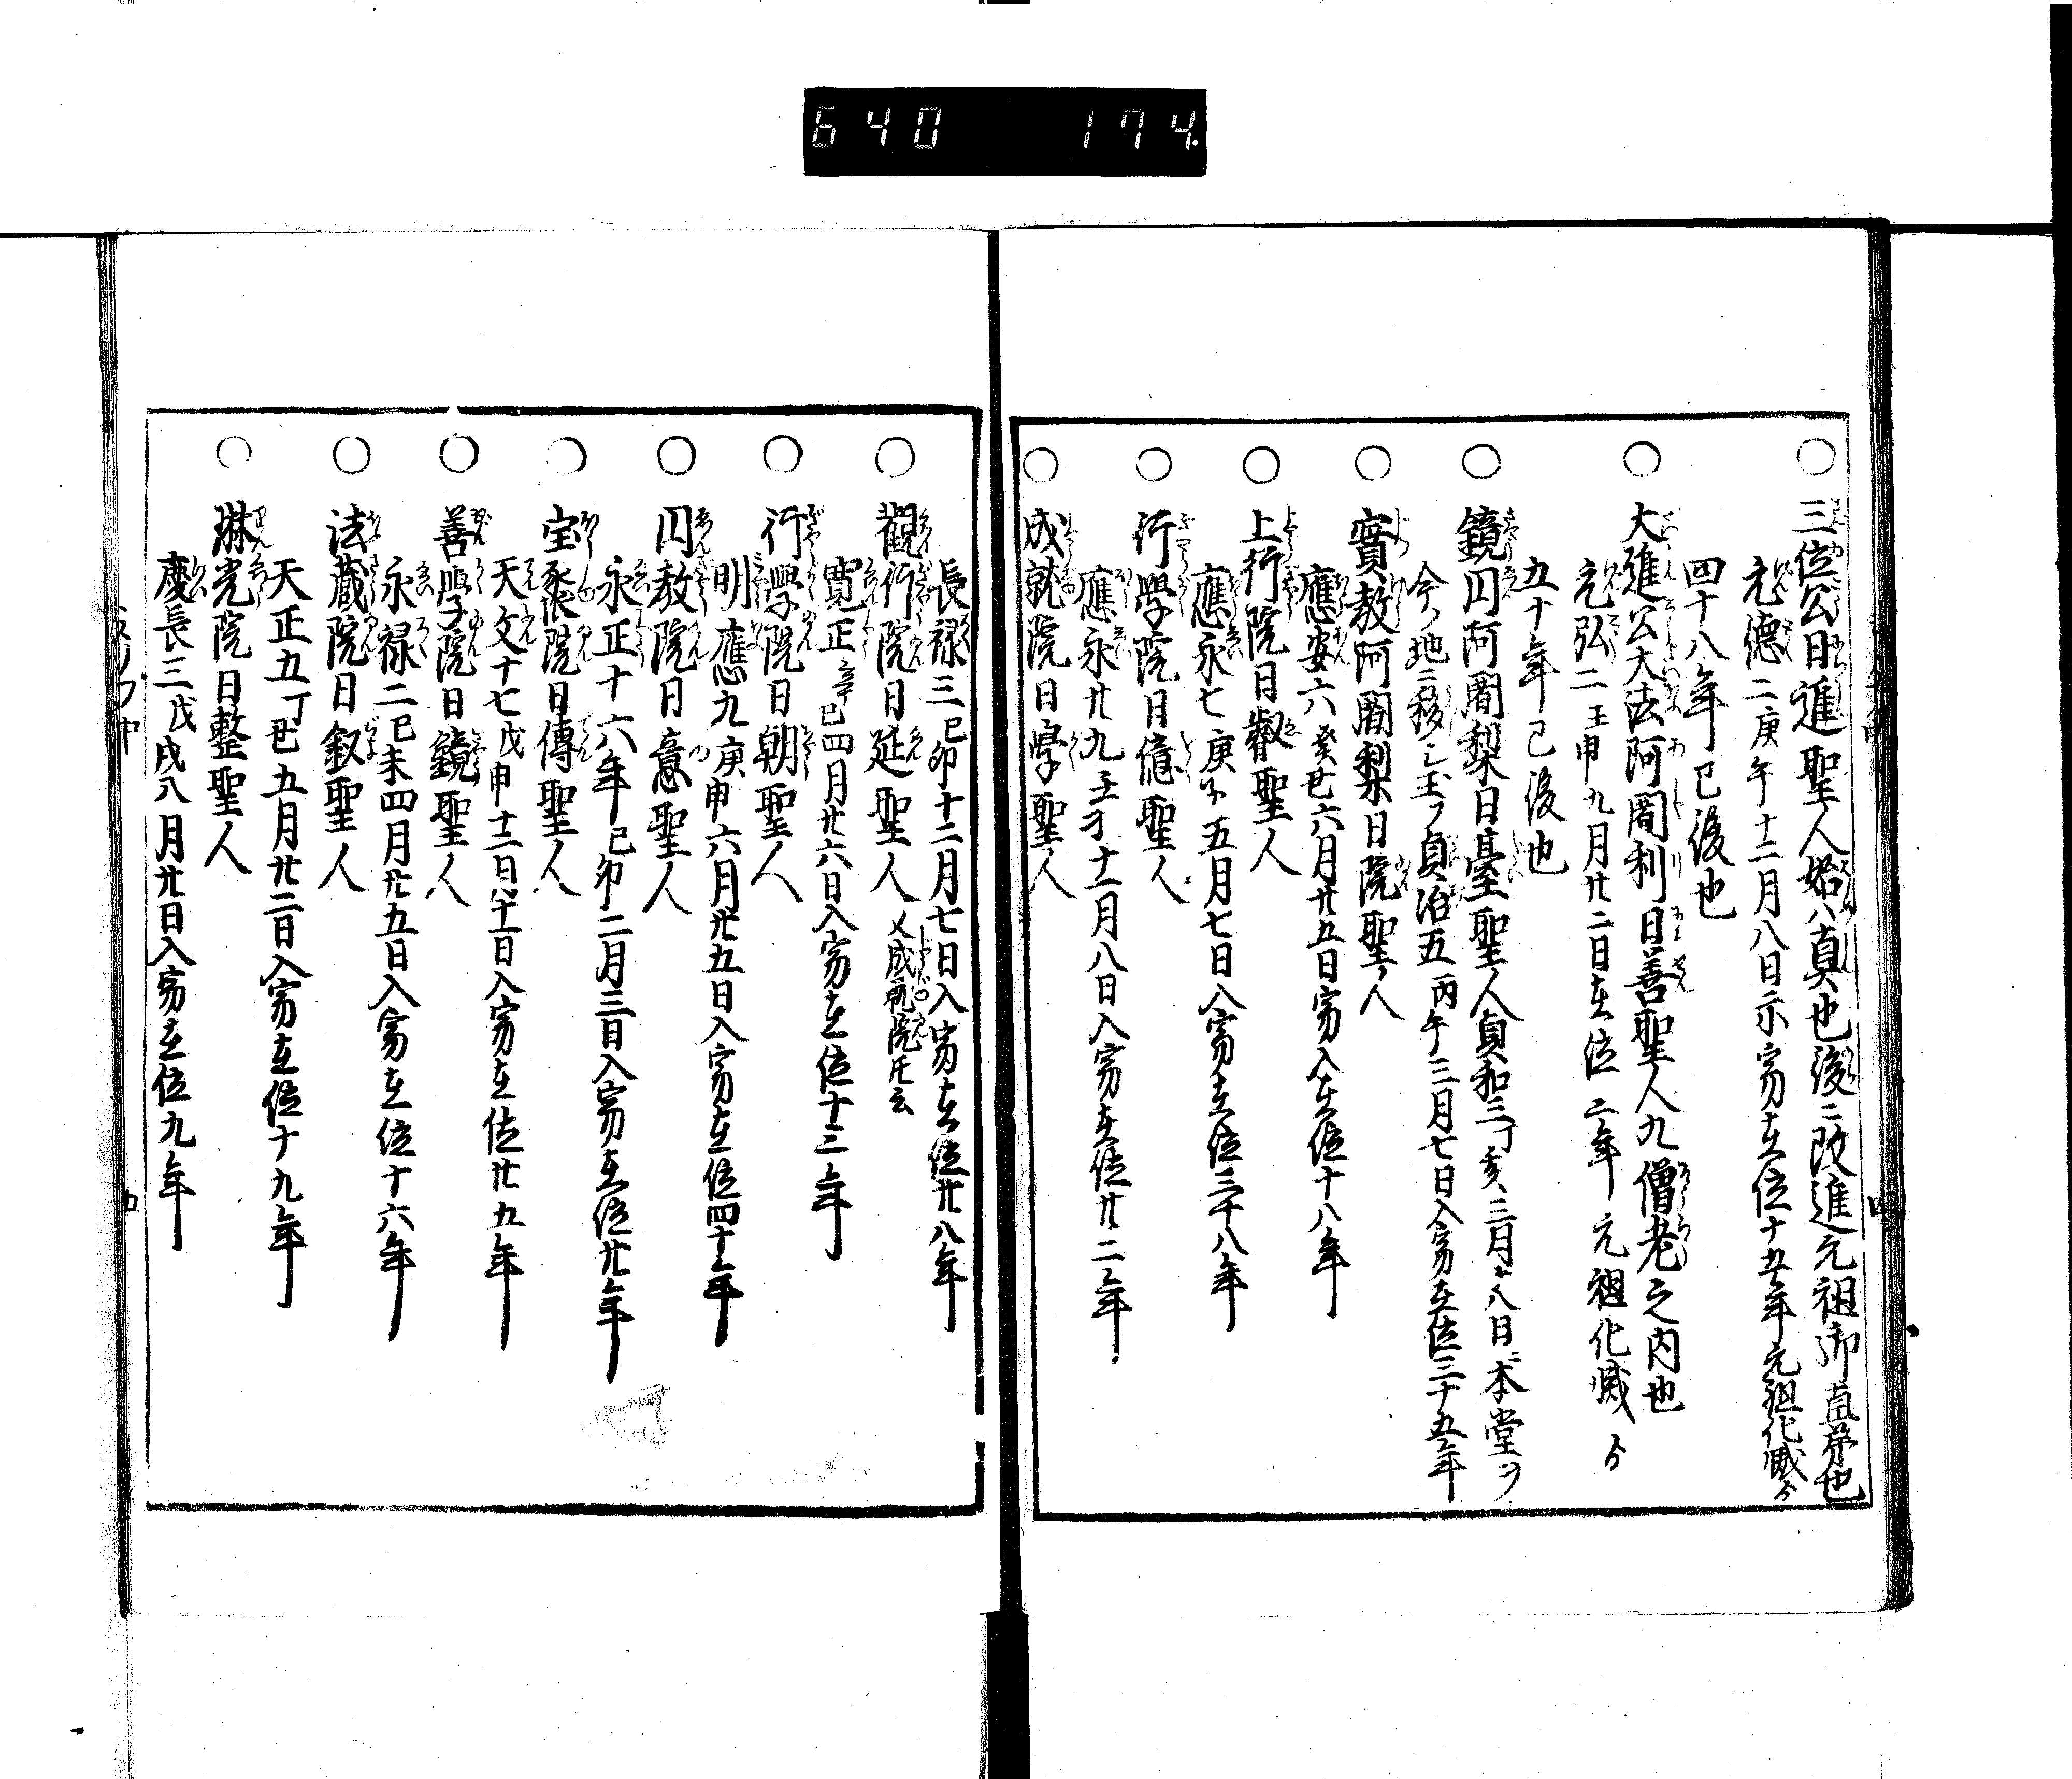 640 174.
○三位公日進聖人始ハ真也後ニ改進元祖御直弟也
元德二庚午十二月八日示寂在位十五年元祖化滅ゟ
四十八年已後也
○大進公大法阿闍利日善聖人九僧老之内也
元弘二壬申九月廿二日在位二年元祖化滅ゟ
五十年已後也
○鏡円阿闍梨日臺聖人貞和三丁亥三月十八日ニ本堂ヲ
今ノ地ニ移シ玉フ貞治五丙午三月七日入寂在位三十五年
○實教阿闍梨日院聖人
應安六癸丑六月廿五日寂入在位十八年
○上行院日叡聖人
應永七庚子五月七日入寂在位三十八年
○行學院日億聖人
應永廿九壬才十一月八日入寂在位廿二年
○成就院日學聖人
長禄三己卯十二月七日入寂在位廿八年
○觀行院日延聖人 又成就院圧云
寛正辛巳四月廿六日入寂在位十三年
○行學院日朝聖人
明應九庚申六月廿五日入寂在位四十年
○円教院日意聖人
永正十六年己卯二月三日入寂在位廿年
○宝聚院日傳聖人
天文十七戊申十二日十一日入寂在位廿五年
○善學院日鏡聖人
永禄二己未四月廿五日入寂在位十六年
○法蔵院日叙聖人
天正五丁丑五月廿二日入寂在位十九年
○琳光院日整聖人
慶長三戊戌八月廿日入寂在位九年